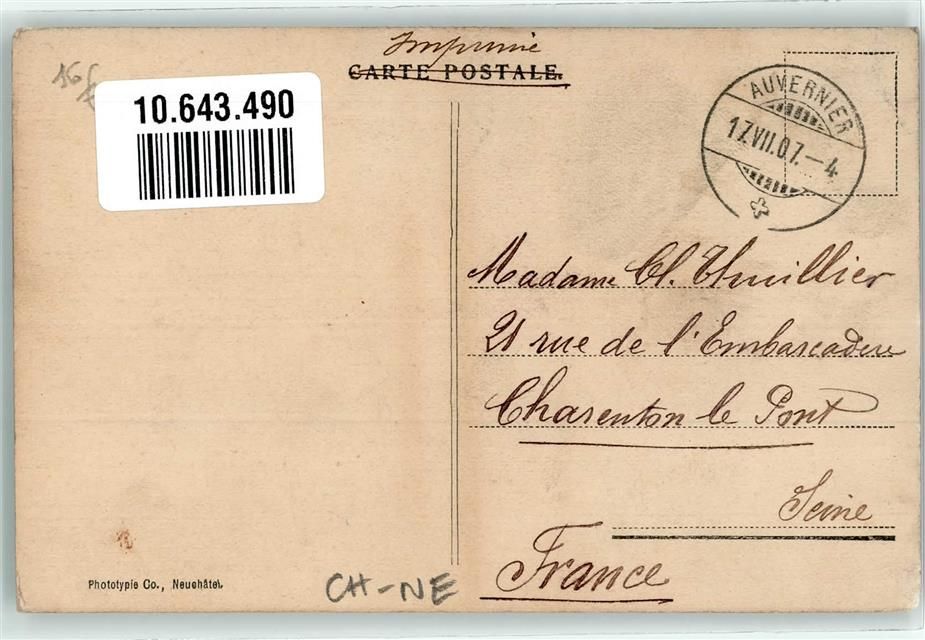 Imprimé
CARTE POSTALE.
10.643.490
AUVERNIER
17.VII.07.-4
Madame Cl. Thuillier
21 rue de l'Embarcadère
Charenton le Pont
Seine
France
Phototypie Co., Neuchâtel.
CH-NE